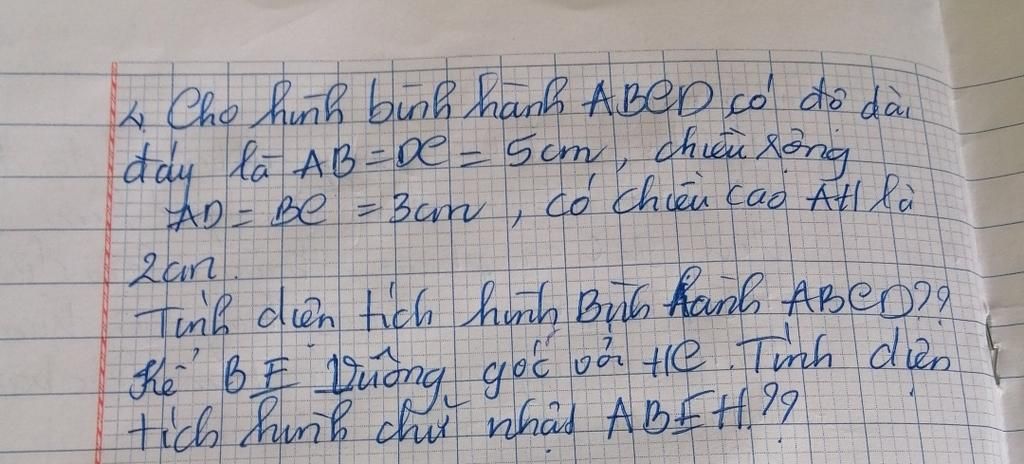 4. Cho hình bình hành ABCD có độ dài
đáy là AB = DC = 5cm, chiều rộng
AD = BC = 3cm, có chiều cao AH là
2cm.
Tính diện tích hình Bình hành ABCD??
Kẻ BE Vuông góc với HC. Tính diện
tích hình chữ nhật ABEH??